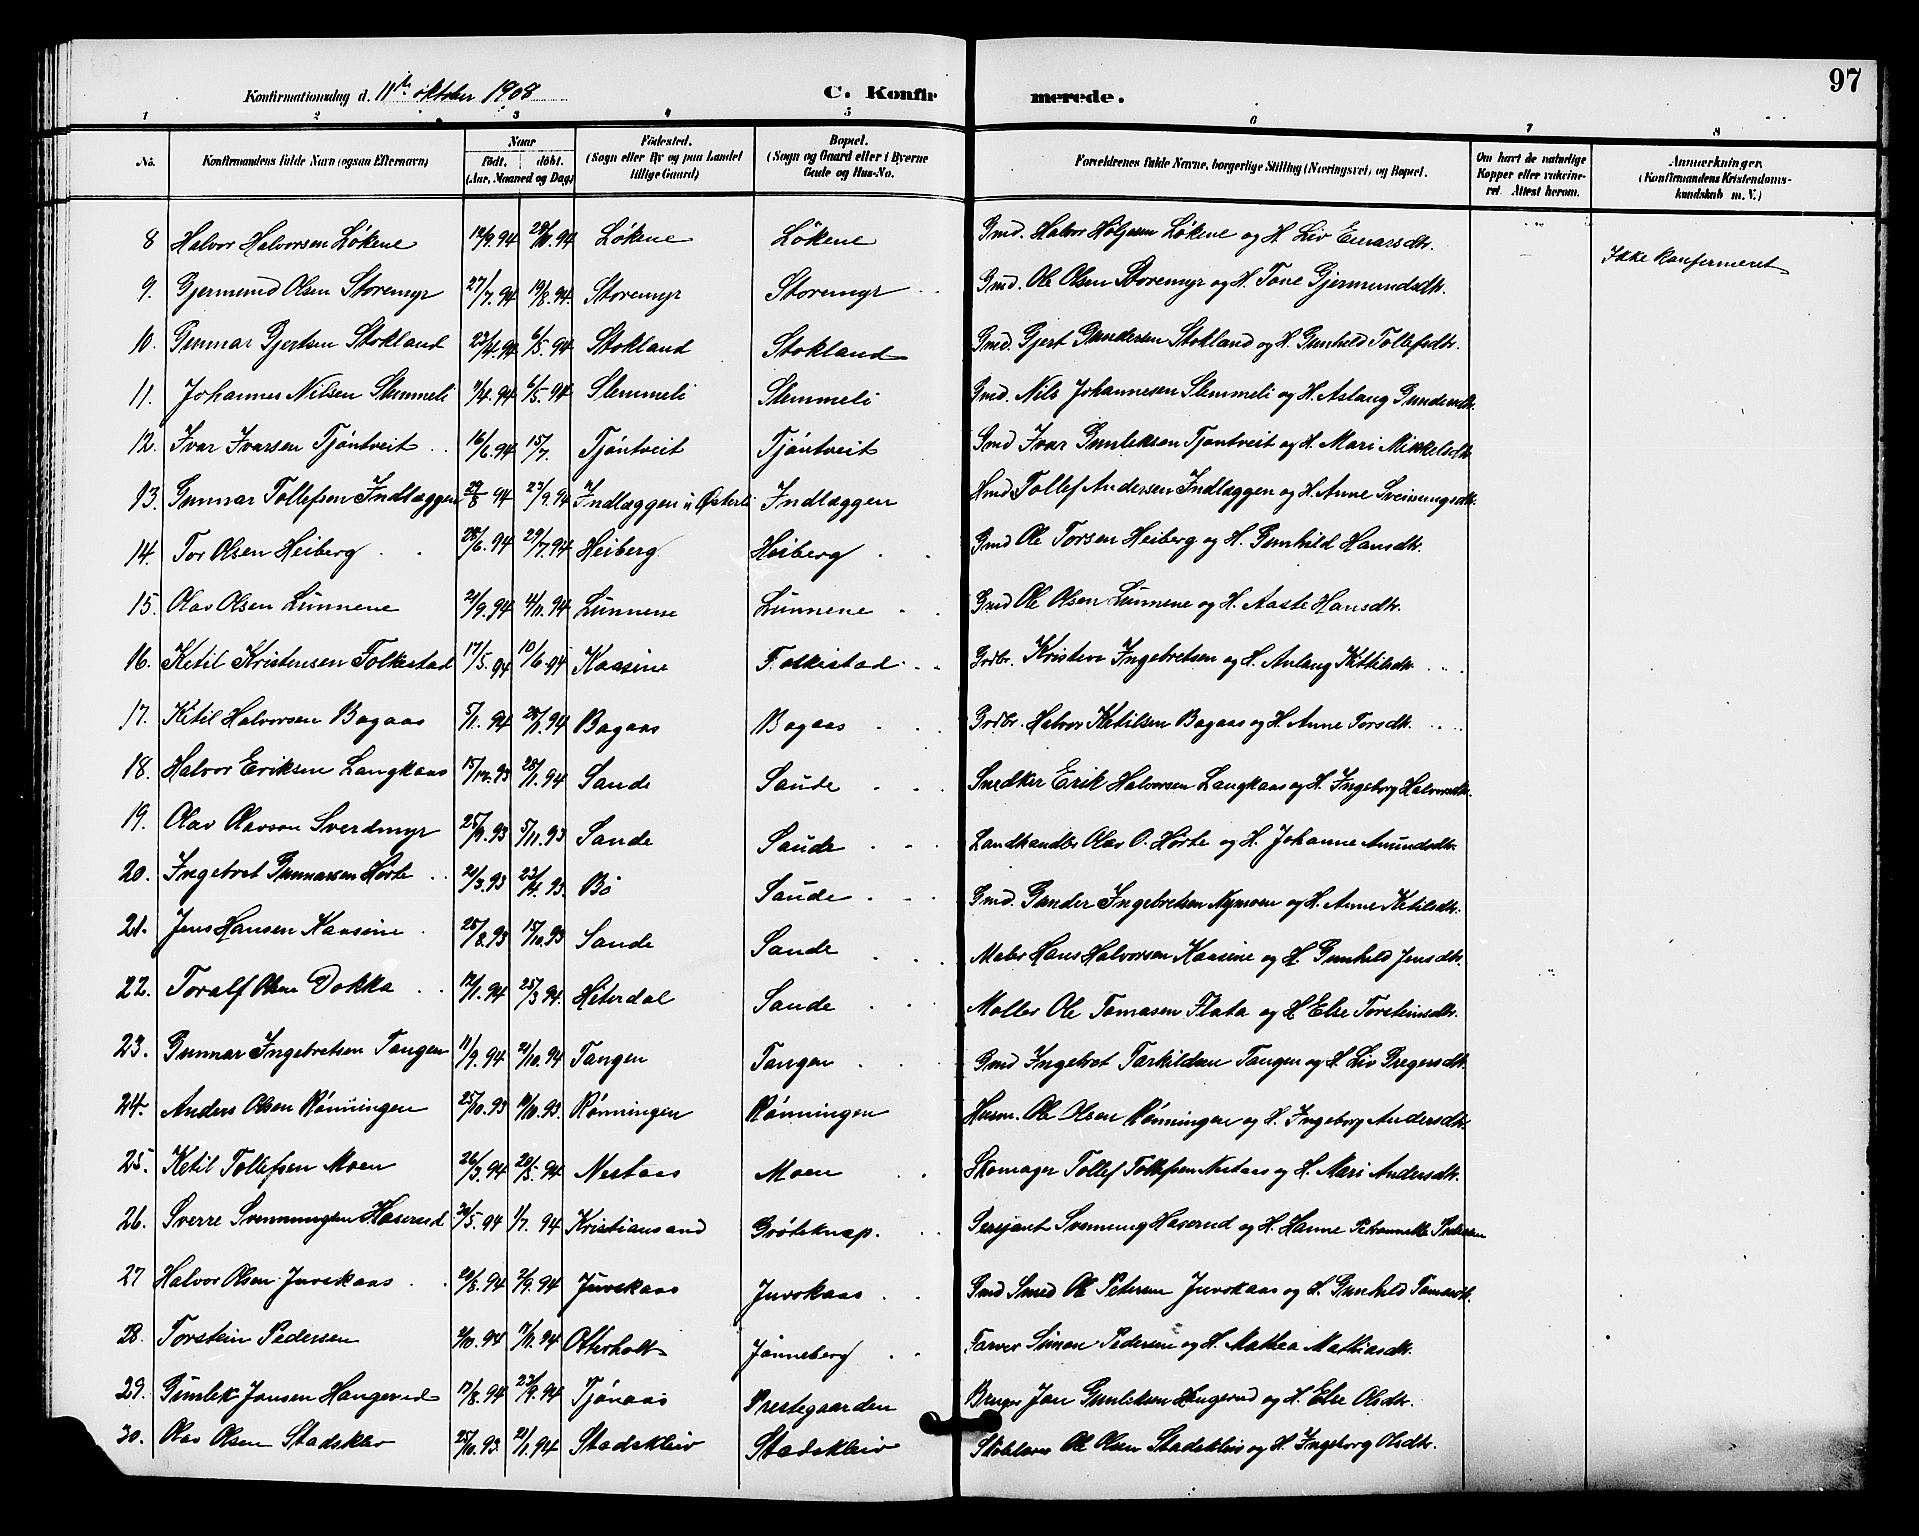 97
Konfirmationsdag d. 11te oktober 1908 C. Konfirmerede.
1 2 3 4 5 6 7 8
No. Konfirmandens fulde Navn (ogsaa Efternavn) Naar født. døbt. (Aar, Maaned og Dag) Fødested. (Sogn eller By og paa Landet tillige Gaard) Bopæl. (Sogn og Gaard eller i Byerne Gade og Hus-No. Forældrenes fulde Navne, borgerlige Stilling (Næringsvei) og Bopæl. Om havt de naturlige Kopper eller vakcineret. Attest herom. Anmærkninger. (Konfirmandens Kristendomskundskab m. V.)
8 Halvor Halvorsen Lökene 19/9.94 28/10.94 Lökene Lökene Gmd. Halvor Holjesen Lökene og H. Liv Einarsdtr. Ikke konfermeret
9. Gjermund Olsen Storemyr 27/7.94 19/8.94 Storemyr Storemyr Gmd. Ole Olsen Storemyr og H. Tone Gjermundsdtr.
10. Gunnar Gjertsen Stokland 23/4.94 6/5.94 Stokland Stokland Gmd. Gjert Gundersen Stokland og H. Gunhild Tollefsdtr.
11. Johannes Nilsen Slemmeli 7/4.94 6/5.94 Slemmeli Slemmeli Gmd. Nils Johannesen Slemmeli og H. Aslaug Gundersdtr.
12. Ivar Ivarsen Tjöntveit 16/6.94 15/7. Tjöntveit Tjöntveit Gmd Ivar Gunleksen Tjöntveit og H. Mari Mikkelsdtr
13. Gunnar Tollefsen Indlæggen 29/8 94 23/9.94 Indlæggen u Østerli Indlæggen Hmd Tollef Andersen Indlæggen og H. Anne Sveinungsdtr.
14. Tor Olsen Heiberg 28/6.94 29/7.94 Heiberg Heiberg Gmd Ole Torsen Heiberg og H. Gunhild Hansdtr.
15. Olav Olsen Lunnene 21/9.94 4/11.94 Lunnene Lunnene Gmd Ole Olsen Lunnene og H. Aaste Hansdtr.
16. Ketil Kristensen Folkestad 17/5.94 10/6.94 Kaasine Folkestad Grdbr. Kristen Ingebretsen og H. Aslaug Kittilsdtr
17. Ketil Halvorsen Bagaas 5/1.94 28/1.94 Bagaas Bagaas Grdbr. Halvor Ketilsen Bagaas og H. Anne Torsdtr.
18. Halvor Eriksen Langkaas 15/12.93 28/1.94 Sande Saude Snedker Erik Halvorsen Langkaas og H. Ingeborg Halvorsdtr.
19. Olav Olavson Sverdmyr 25/9.93 5/11.93 Sande Saude Landhandler Olav O. Hörte og H. Johanne Amundsdtr.
20. Ingebret Gunnarsen Hörte 21/3.93 23/4.93. Bö Saude Gmd. Gunder Ingebretsen Nymoen og H. Anne Ketilsdtr.
21. Jens Hansen Kaasine 25/8.93 15/10.93 Sande Saude Maler Hans Halvorsen Kaasine og H. Gunhild Jensdtr.
22. Toralf Olsen Dokka 12/1.94 25/3.94. Hiterdal Saude Moller Ole Tomasen Flata og H Else Torsteinsdtr.
23. Gunnar Ingebretsen Tangen 11/9.94 21/10.94 Tangen Tangen Gmd Ingebret Tarkildsen Tangen og H. Liv Gregersdtr.
24. Anders Olsen Rönningen 25/10.93 19/11.93. Rönningen Rönningen Husm. Ole Olsen Rönningen og H. Ingeborg Andersdtr.
25. Ketil Tollefsen Moen 26/3.94 20/5.94 Nestaas Moen Skomager Tollef Tollefsen Nestaas og H. Mari Andersdtr.
26. Sverre Svenningsen Haserud 30/5.94 1/7.94 Kristiansand Gröteknap. Sersjant Svenning Haserud og H. Hanne Petronnelle Pedersen
27 Halvor Olsen Juvskaas 20/8.94 2/9.94 Juvskaas Juvskaas Gmd Smed Ole Petersen Juvskaas og H. Gunhild Tomasdtr.
28. Torstein Pedersen 2/10.94 7/11.94 Otterholt Jönneberg Farver Simon Pedersen og H. Mathea Mathiasdtr.
29. Gunlek Jonsen Haugerud 17/8.94 23/9.94 Tjönaas Prestegaarden Bruger Jon Gunleksen Haugerud og H. Else Olsdtr.
30. Olav Olsen Stadsklev 25/11.93. 21/1.94 Stadskleiv Stadskleiv Ole Olsen Stadskleiv og H. Ingeborg Olsdtr.